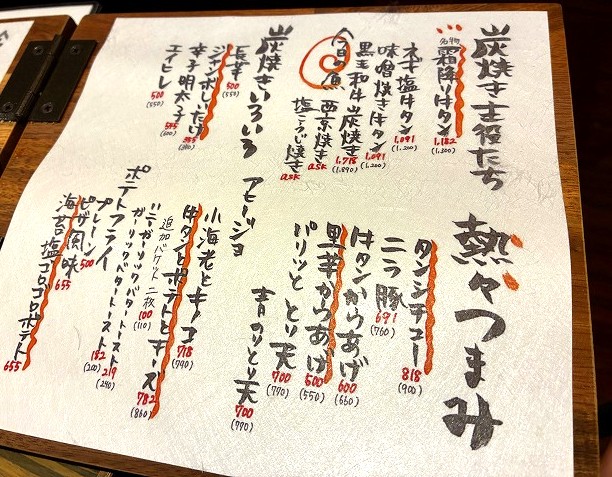 炭焼き主役たち
名物 霜降り牛タン 1,182 (1,300)
ネギ塩牛タン 1,091 (1,200)
味噌焼き牛タン 1,091 (1,200)
黒毛和牛炭焼き 1,718 (1,890)
今日の魚
西京焼き ask
塩こうじ焼き ask
炭焼きいろいろ
長芋 500 (550)
ジャンボしいたけ
辛子明太子 545 (600)
エイヒレ 500 (550)
熱々つまみ
タンシチュー 818 (900)
ニラ豚 691 (760)
牛タンからあげ 600 (660)
里芋からあげ 500 (550)
パリッと とり天 700 (770)
青のりとり天 700 (770)
アヒージョ
小海老とキノコ 718 (790)
牛タンとポテトとチーズ 782 (860)
追加バケット 二枚 100 (110)
ハニーガーリックバタートースト 219 (240)
ガーリックバタートースト 182 (200)
ポテトフライ
プレーン 500
ピザ風味 655
海苔塩ゴロゴロポテト 655